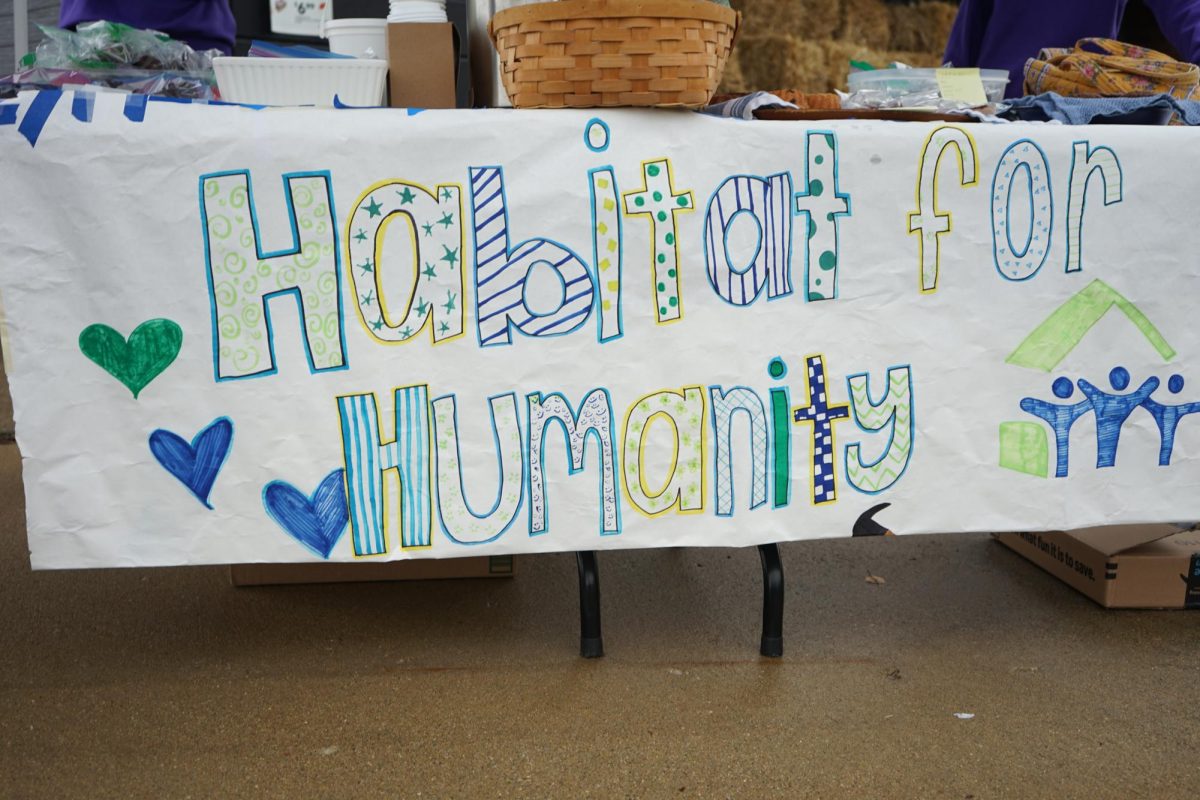 Habitat for
Humanity
what fun it is to save.